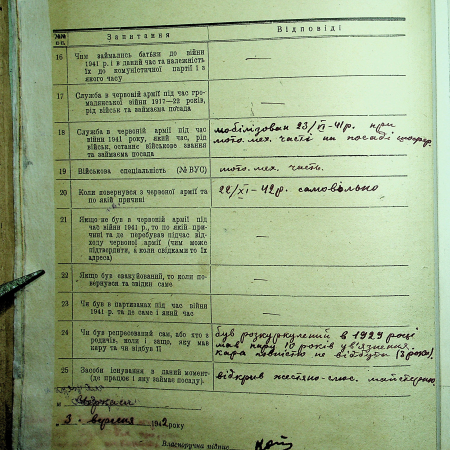 №№ пп.
Запитання
Відповіді
16
Чим займались батьки до війни
1941 р. і в даний час та належність
їх до комуністичної партії і з
якого часу
—
17
Служба в червоній армії під час гро-
мадянської війни 1917—22 років,
рід військ та займаєма посада
—
18
Служба в червоній армії під час
війни 1941 року, який час, рід
військ, останнє військове звання
та займаєма посада
мобілізован 23/VI-41р. при
мото.мех. часті на посаді
19
Військова спеціальність (№ ВУС)
мото. мех. часть.
20
Коли повернувся з червоної армії та
по якій причині
22/XI-42р. самовільно
21
Якщо не був в червоній армії під
час війни 1941 р., то по якій при-
чині та де перебував підчас від-
ходу червоної армії (чим може
підтвердити, а коли свідками то їх
адреса)
—
22
Якщо був евакуйований, то коли по-
вернувся та звідки саме
—
23
Чи був в партизанах під час війни
1941 р. та де саме і який час
—
24
Чи був репресований сам, або хто з
родичів, коли і защо, яку мав
кару та чи відбув її
був розкуркулений в 1929 році
мав кару 10 років ув'язнення.
кара повністю не відбута (3 роки).
25
Засоби існування в даний момент
(де працює і яку займає посаду).
відкрив жестяно-слюс. майстерню
3. вересня 1942 року
Власноручна підпис